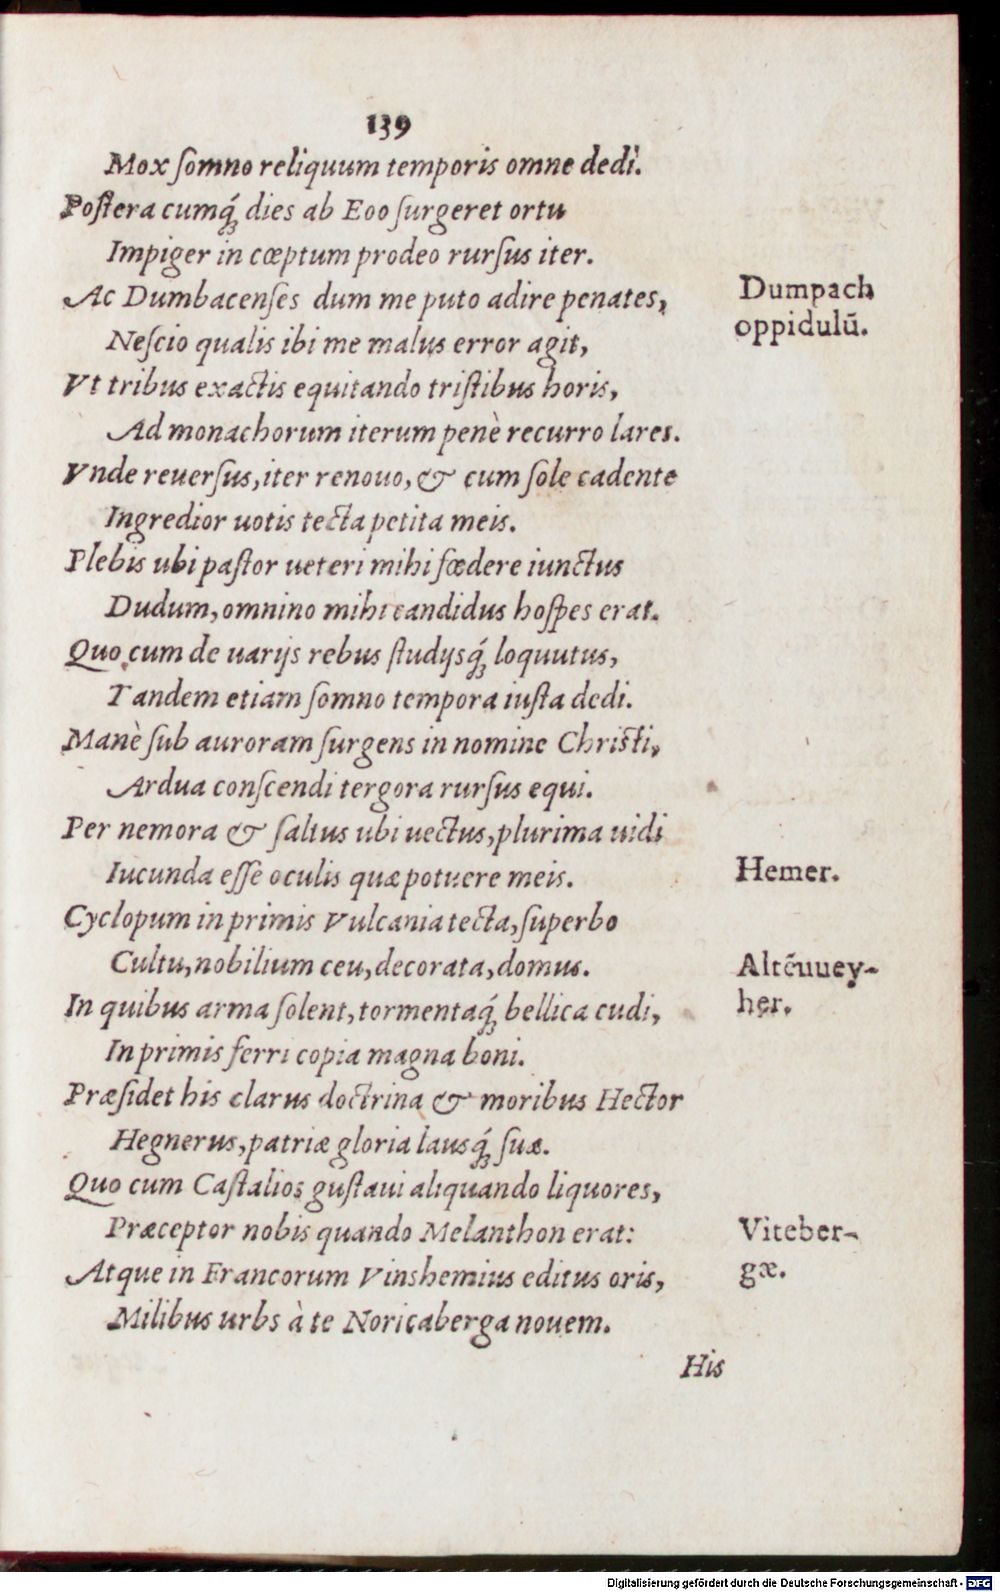 139
Mox ſomno reliquum temporis omne dedi.
Poſtera cumq́; dies ab Eoo ſurgeret ortu
Impiger in cœptum prodeo rurſus iter.
Ac Dumbacenſes dum me puto adire penates,
Dumpach
oppidulū.
Neſcio qualis ibi me malus error agit,
Vt tribus exactis equitando triſtibus horis,
Ad monachorum iterum penè recurro lares.
Vnde reuerſus, iter renouo, & cum ſole cadente
Ingredior uotis tecta petita meis.
Plebis ubi paſtor ueteri mihi fœdere iunctus
Dudum, omnino mihi candidus hoſpes erat.
Quo cum de uarijs rebus ſtudijsq́; loquutus,
Tandem etiam ſomno tempora iuſta dedi.
Manè ſub auroram ſurgens in nomine Chriſti,
Ardua conſcendi tergora rurſus equi.
Per nemora & ſaltus ubi uectus, plurima uidi
Iucunda eſſe oculis quæ potuere meis.
Hemer.
Cyclopum in primis Vulcania tecta, ſuperbo
Cultu, nobilium ceu, decorata, domus.
Altēuuey-
her.
In quibus arma ſolent, tormentaq́; bellica cudi,
In primis ferri copia magna boni.
Præſidet his clarus doctrina & moribus Hector
Hegnerus, patriæ gloria lausq́; ſuæ.
Quo cum Caſtalios guſtaui aliquando liquores,
Præceptor nobis quando Melanthon erat:
Viteber-
gæ.
Atque in Francorum Vinshemius editus oris,
Milibus urbs à te Noricaberga nouem.
His
Digitalisierung gefördert durch die Deutsche Forschungsgemeinschaft - DFG